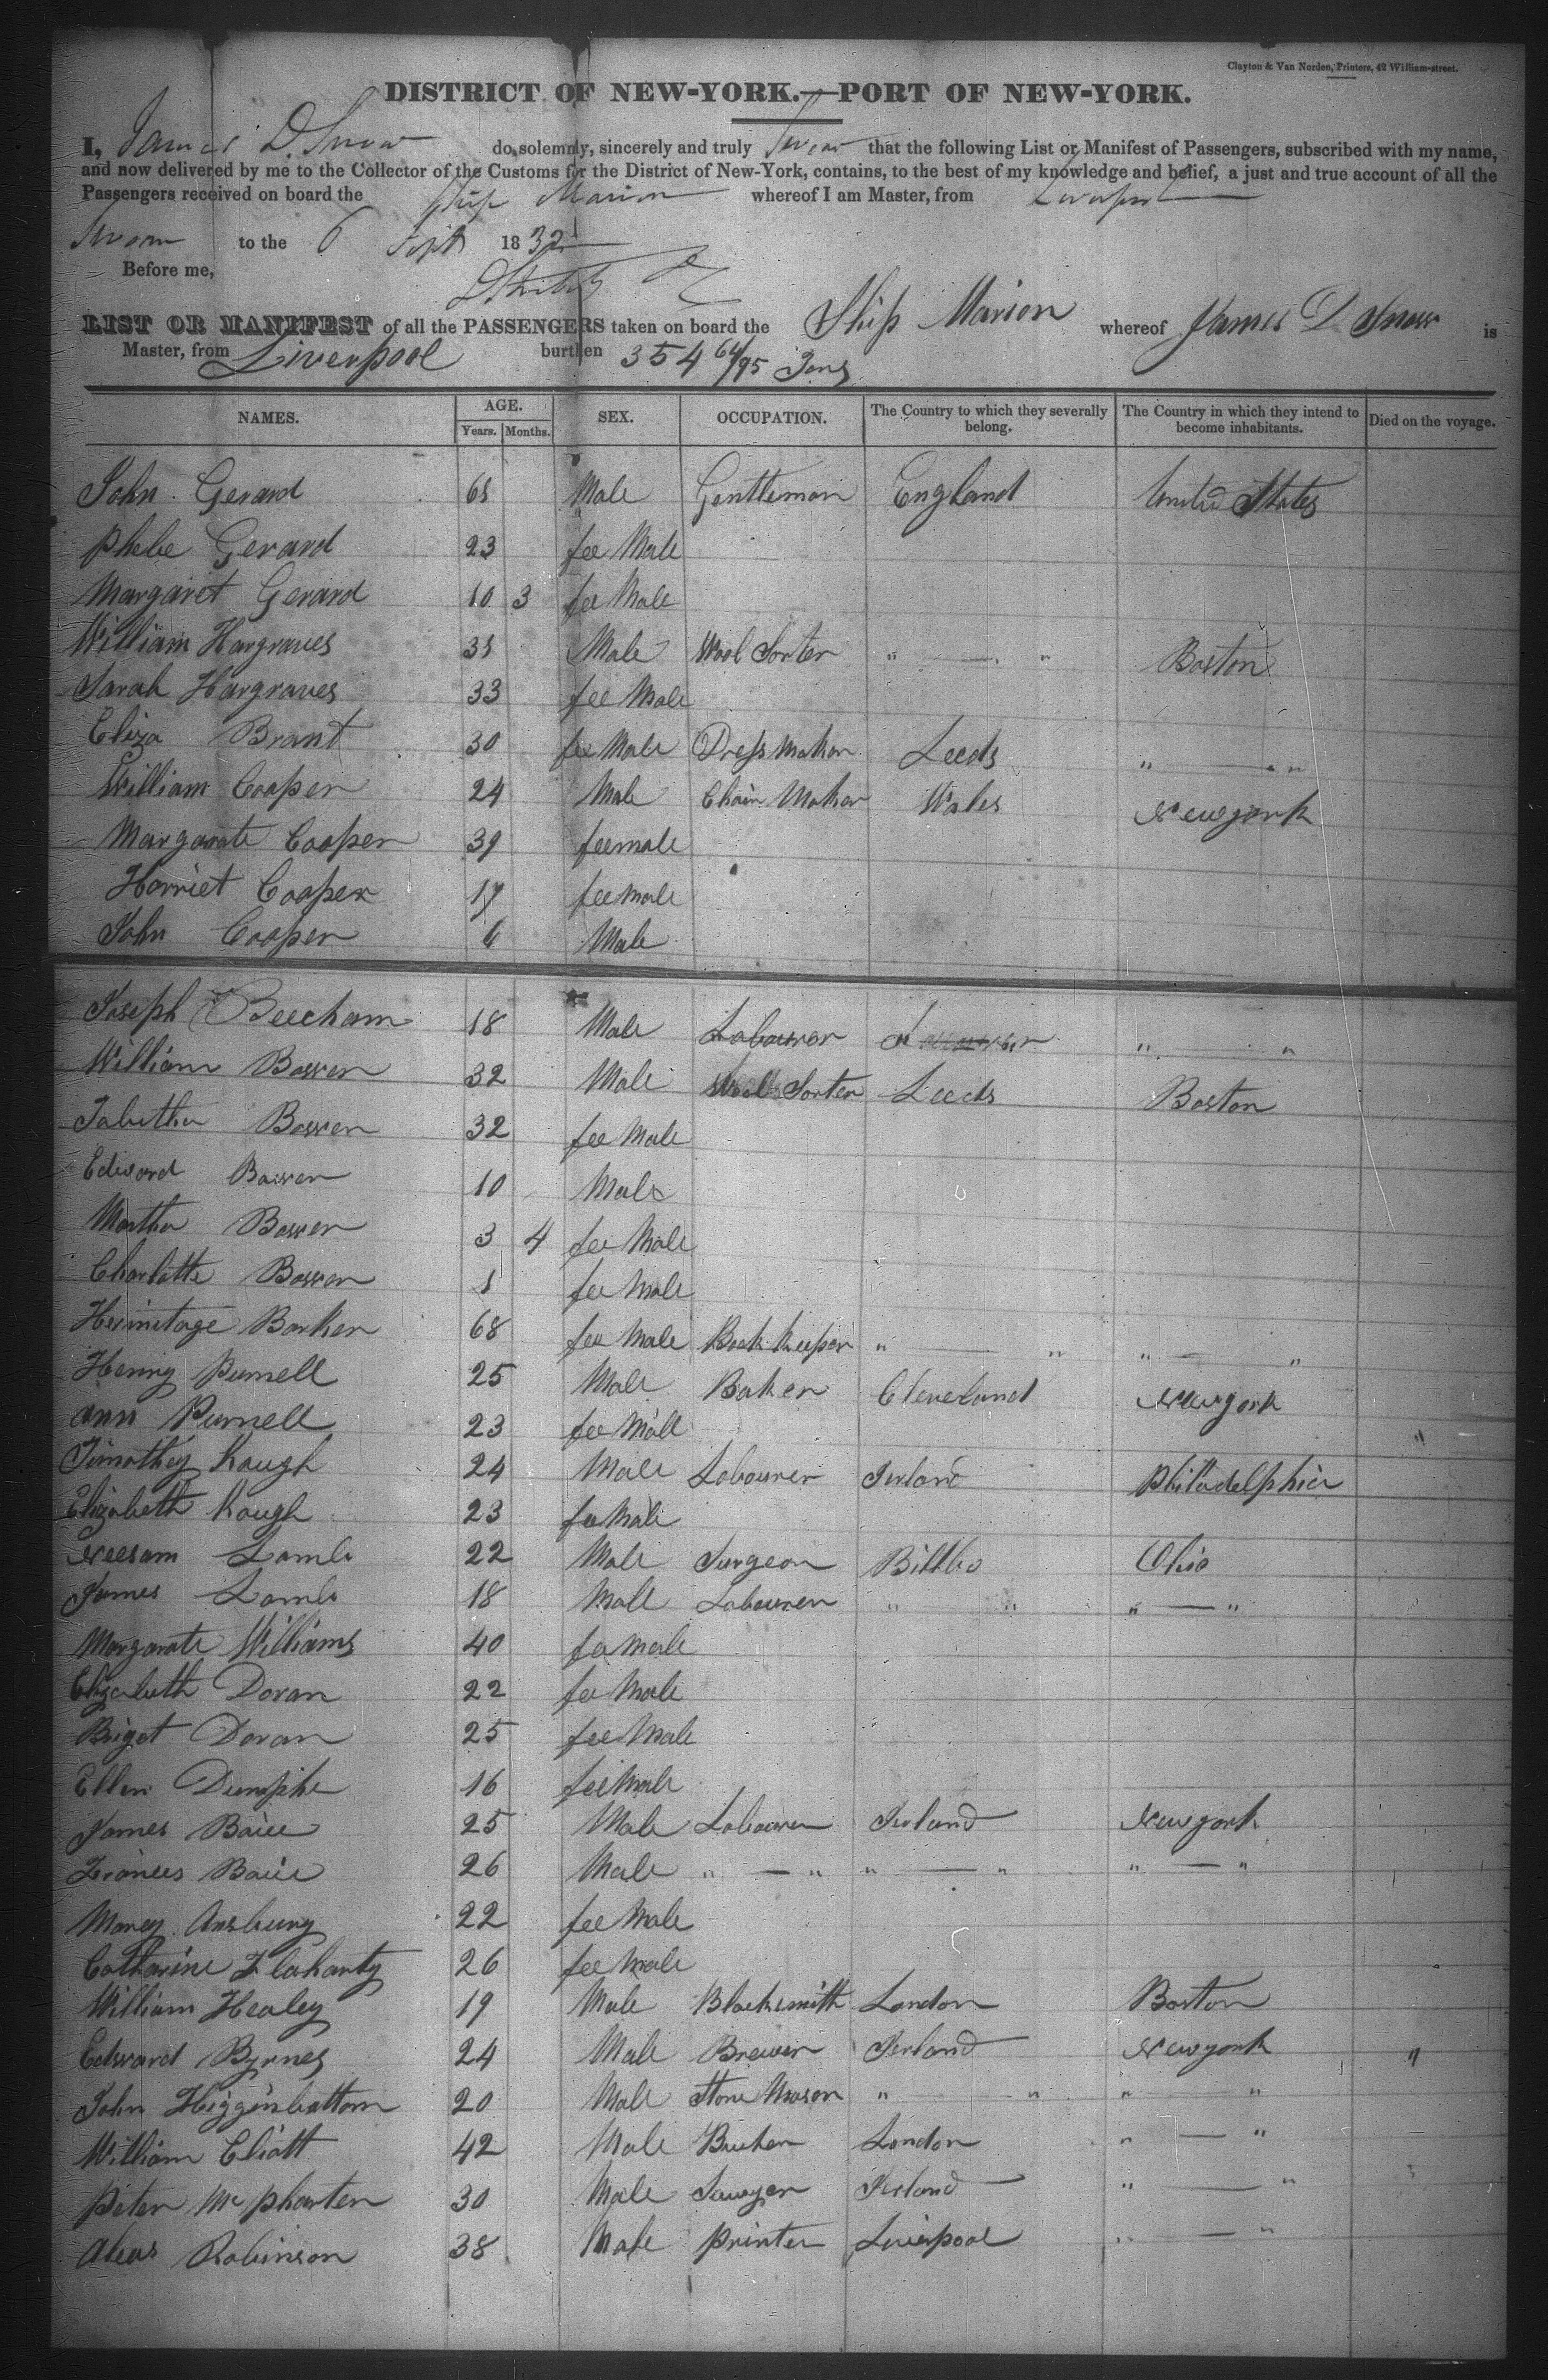 Clayton & Van Norden, Printers, 42 William-street.
DISTRICT OF NEW-YORK.—PORT OF NEW-YORK.
I, James D. Snow do solemnly, sincerely and truly Swear that the following List or Manifest of Passengers, subscribed with my name,
and now delivered by me to the Collector of the Customs for the District of New-York, contains, to the best of my knowledge and belief, a just and true account of all the
Passengers received on board the Ship Marion whereof I am Master, from Liverpool
Sworn to the 6 Sept 1832
Before me,
LIST OR MANIFEST of all the PASSENGERS taken on board the Ship Marion whereof James D Snow is
Master, from Liverpool burthen 354 64/95 Tons
NAMES. AGE. Years. Months. SEX. OCCUPATION. The Country to which they severally belong. The Country in which they intend to become inhabitants. Died on the voyage.
John Gerard 65 Male Gentleman England United States
Phebe Gerard 23 fee Male
Margaret Gerard 10 3 fee Male
William Hargraves 35 Male Wool Sorter " — " Boston
Sarah Hargraves 33 fee Male
Eliza Brant 30 fee Male Dress Maker Leeds " — "
William Cooper 24 Male Chain Maker Wales Newyork
Margarate Cooper 39 feemale
Harriet Cooper 17 feemale
John Cooper 6 Male
Joseph Beecham 18 Male Labourer " — "
William Bowen 32 Male Wool Sorter Leeds Boston
Tabitha Bowen 32 fee Male
Edward Bowen 10 Male
Martha Bowen 3 4 fee Male
Charlotte Bowen 1 fee Male
Hermitage Barker 68 fee Male Book Keeper " — " " — "
Henry Purnell 25 Male Baker Cleveland Newyork
Ann Purnell 23 fee Male "
Timothy Kough 24 Male Labourer Irland Philadelphia
Elizabeth Kough 23 fee Male
Neesam Lamb 22 Male Surgeon Ohio
James Lamb 18 Male Labourer " " " — "
Margarate Williams 40 fee male
Elizabeth Doran 22 fee Male
Briget Doran 25 fee Male
Ellen Dumphe 16 fee Male
James 25 Male Labourer Irland Newyork
Frances 26 Male " — " " — " " — "
Marey Ansbury 22 fee Male
Catharine Flaharty 26 fee male
William Healey 19 Male Blacksmith London Boston
Edward Byrnes 24 Male Brewer Irland Newyork "
John Higginbattom 20 Male Stone Mason " — " " "
William Eliott 42 Male London " — "
Peter McPharten 30 Male Sawyer Irland " — "
Robinson 38 Male Printer Liverpool " — "